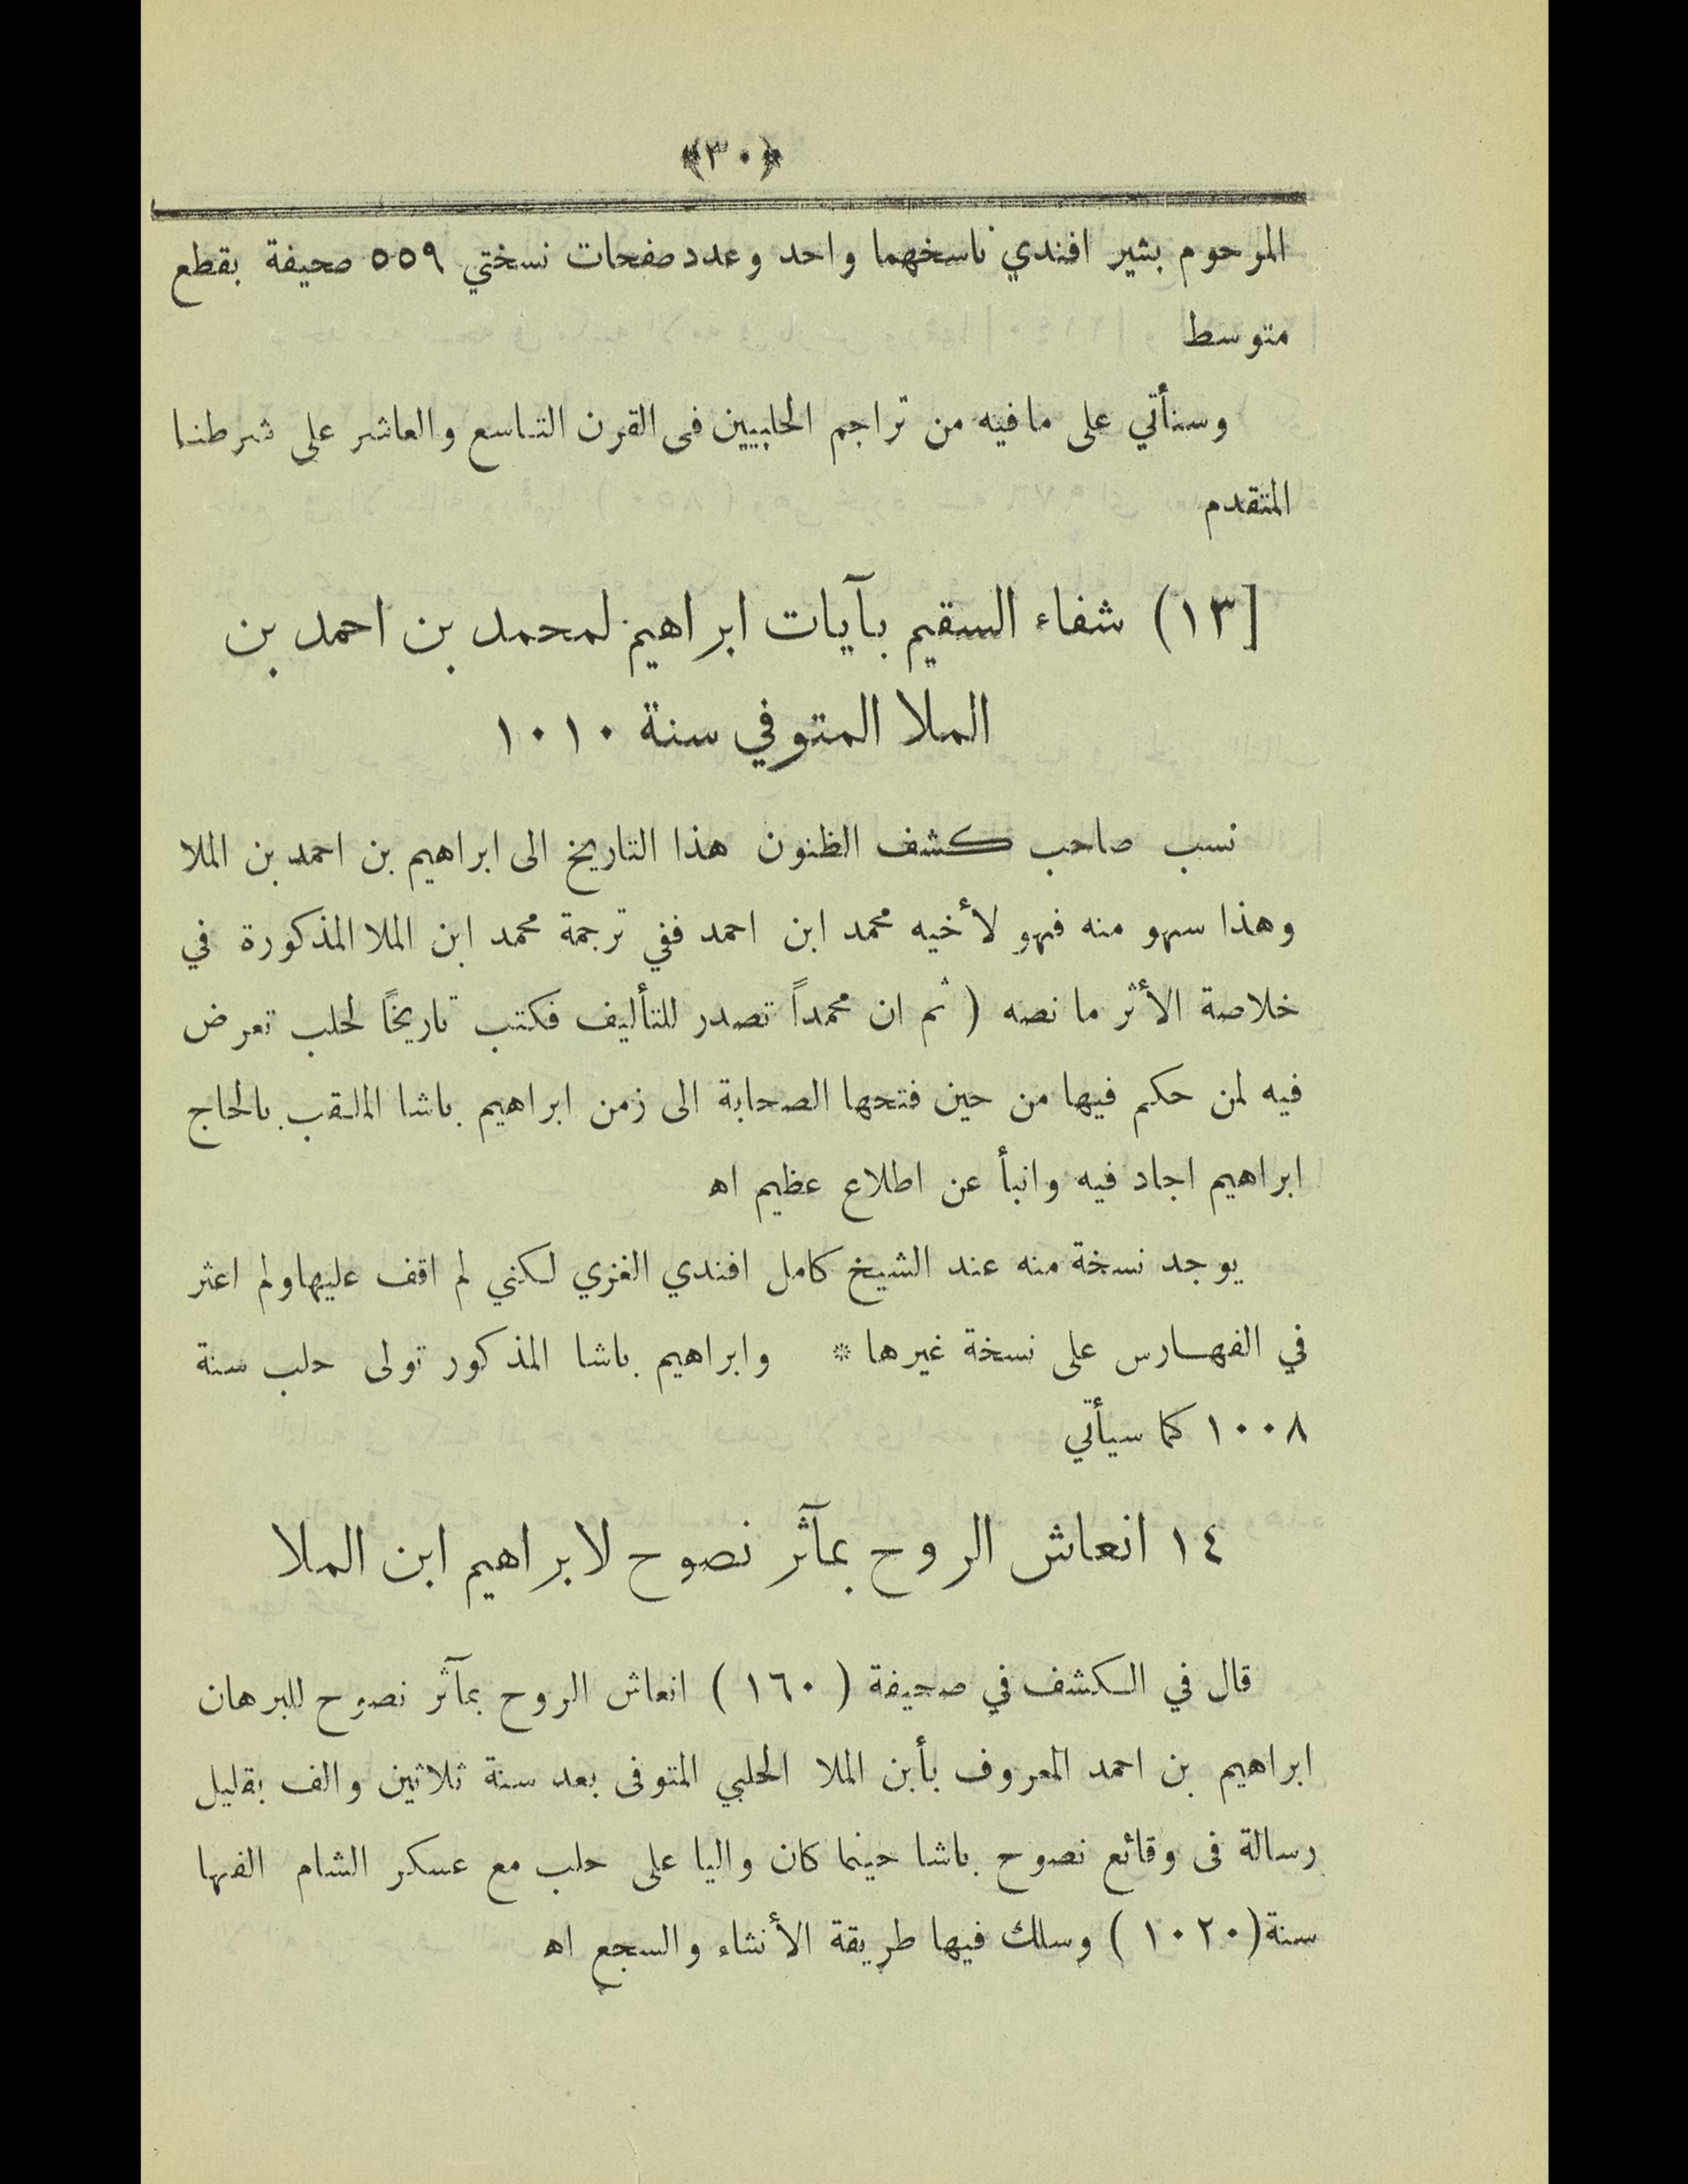 ﴿٣٠﴾
المرحوم بشير افندي ناسخهما واحد وعدد صفحات نسختي ٥٥٩ صحيفة بقطع
متوسط
وسنأتي على مافيه من تراجم الحلبيين فى القرن التاسع والعاشر على شرطنا
المتقدم
[١٣) شفاء السقيم بآيات ابراهيم لمحمد بن احمد بن
الملا المتوفي سنة ١٠١٠
نسب صاحب كشف الظنون هذا التاريخ الى ابراهيم بن احمد بن الملا
وهذا سهو منه فهو لأخيه محمد ابن احمد ففي ترجمة محمد ابن الملا المذكورة في
خلاصة الأثر ما نصه ( ثم ان محمداً تصدر للتأليف فكتب تاريخاً لحلب تعرض
فيه لمن حكم فيها من حين فتحها الصحابة الى زمن ابراهيم باشا الملقب بالحاج
ابراهيم اجاد فيه وانبأ عن اطلاع عظيم اه
يوجد نسخة منه عند الشيخ كامل افندي الغزي لكني لم اقف عليهاولم اعثر
في الفهارس على نسخة غيرها * وابراهيم باشا المذكور تولى حلب سنة
١٠٠٨ كما سيأتي
١٤ انعاش الروح بمآثر نصوح لابراهيم ابن الملا
قال في الكشف في صحيفة ( ١٦٠ ) انعاش الروح بمآثر نصوح للبرهان
ابراهيم بن احمد المعروف بأبن الملا الحلبي المتوفى بعد سنة ثلاثين والف بقليل
رسالة فى وقائع نصوح باشا حينما كان واليا على حلب مع عسكر الشام الفها
سنة(١٠٢٠ ) وسلك فيها طريقة الأنشاء والسجع اه